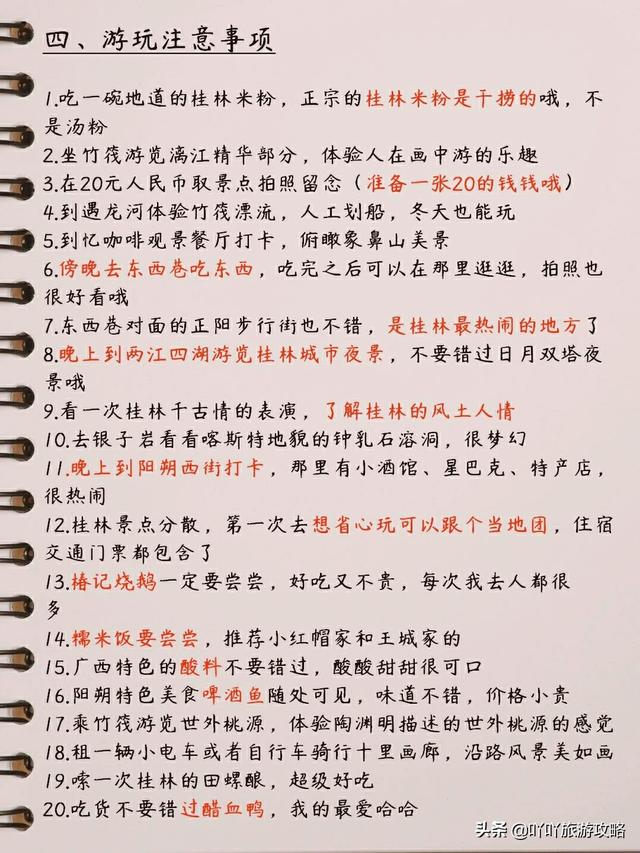 四、游玩注意事项
1.吃一碗地道的桂林米粉，正宗的桂林米粉是干捞的哦，不
是汤粉
2.坐竹筏游览漓江精华部分，体验人在画中游的乐趣
3.在20元人民币取景点拍照留念（准备一张20的钱钱哦）
4.到遇龙河体验竹筏漂流，人工划船，冬天也能玩
5.到忆咖啡观景餐厅打卡，俯瞰象鼻山美景
6.傍晚去东西巷吃东西，吃完之后可以在那里逛逛，拍照也
很好看哦
7.东西巷对面的正阳步行街也不错，是桂林最热闹的地方了
8.晚上到两江四湖游览桂林城市夜景，不要错过日月双塔夜
景哦
9.看一次桂林千古情的表演，了解桂林的风土人情
10.去银子岩看看喀斯特地貌的钟乳石溶洞，很梦幻
11.晚上到阳朔西街打卡，那里有小酒馆、星巴克、特产店，
很热闹
12.桂林景点分散，第一次去想省心玩可以跟个当地团，住宿
交通门票都包含了
13.椿记烧鹅一定要尝尝，好吃又不贵，每次我去人都很
多
14.糯米饭要尝尝，推荐小红帽家和王城家的
15.广西特色的酸料不要错过，酸酸甜甜很可口
16.阳朔特色美食啤酒鱼随处可见，味道不错，价格小贵
17.乘竹筏游览世外桃源，体验陶渊明描述的世外桃源的感觉
18.租一辆小电车或者自行车骑行十里画廊，沿路风景美如画
19.嗦一次桂林的田螺酿，超级好吃
20.吃货不要错过醋血鸭，我的最爱哈哈
头条 @吖吖旅游攻略